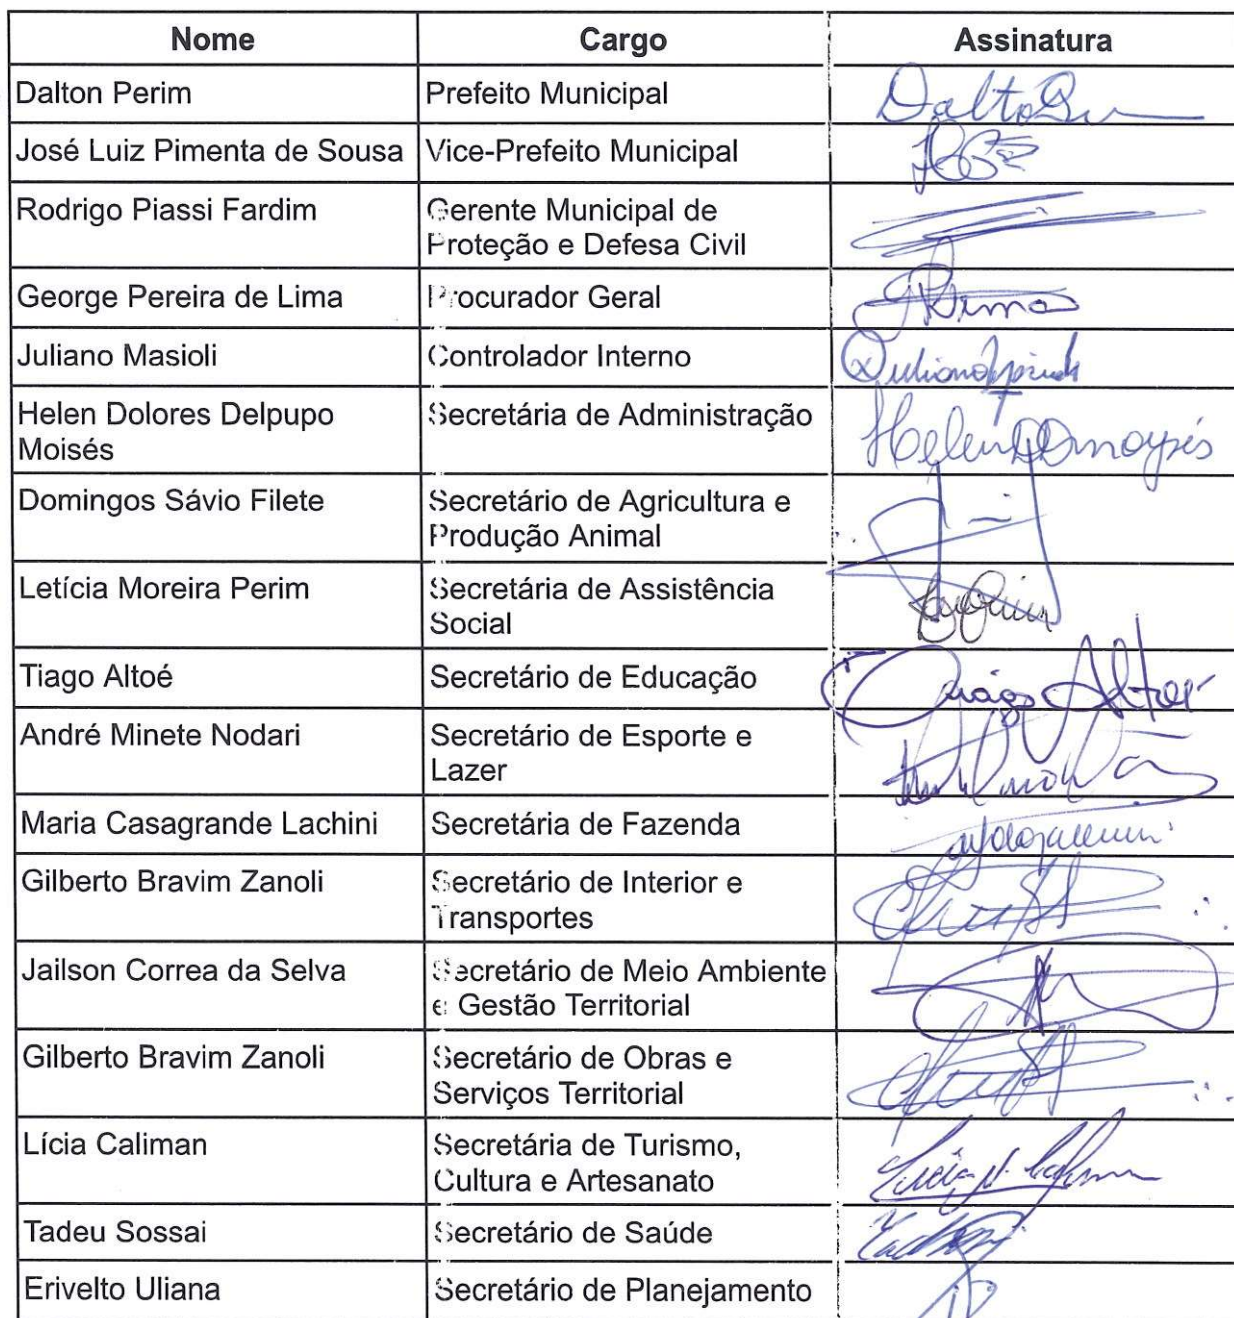 Nome Cargo Assinatura
Dalton Perim Prefeito Municipal
José Luiz Pimenta de Sousa Vice-Prefeito Municipal
Rodrigo Piassi Fardim Gerente Municipal de
Proteção e Defesa Civil
George Pereira de Lima Procurador Geral
Juliano Masioli Controlador Interno
Helen Dolores Delpupo Secretária de Administração
Moisés
Domingos Sávio Filete Secretário de Agricultura e
Produção Animal
Letícia Moreira Perim Secretária de Assistência
Social
Tiago Altoé Secretário de Educação Tiago Altoé
André Minete Nodari Secretário de Esporte e
Lazer
Maria Casagrande Lachini Secretária de Fazenda
Gilberto Bravim Zanoli Secretário de Interior e
Transportes
Jailson Correa da Selva Secretário de Meio Ambiente
e Gestão Territorial
Gilberto Bravim Zanoli Secretário de Obras e
Serviços Territorial
Lícia Caliman Secretária de Turismo,
Cultura e Artesanato
Tadeu Sossai Secretário de Saúde
Erivelto Uliana Secretário de Planejamento